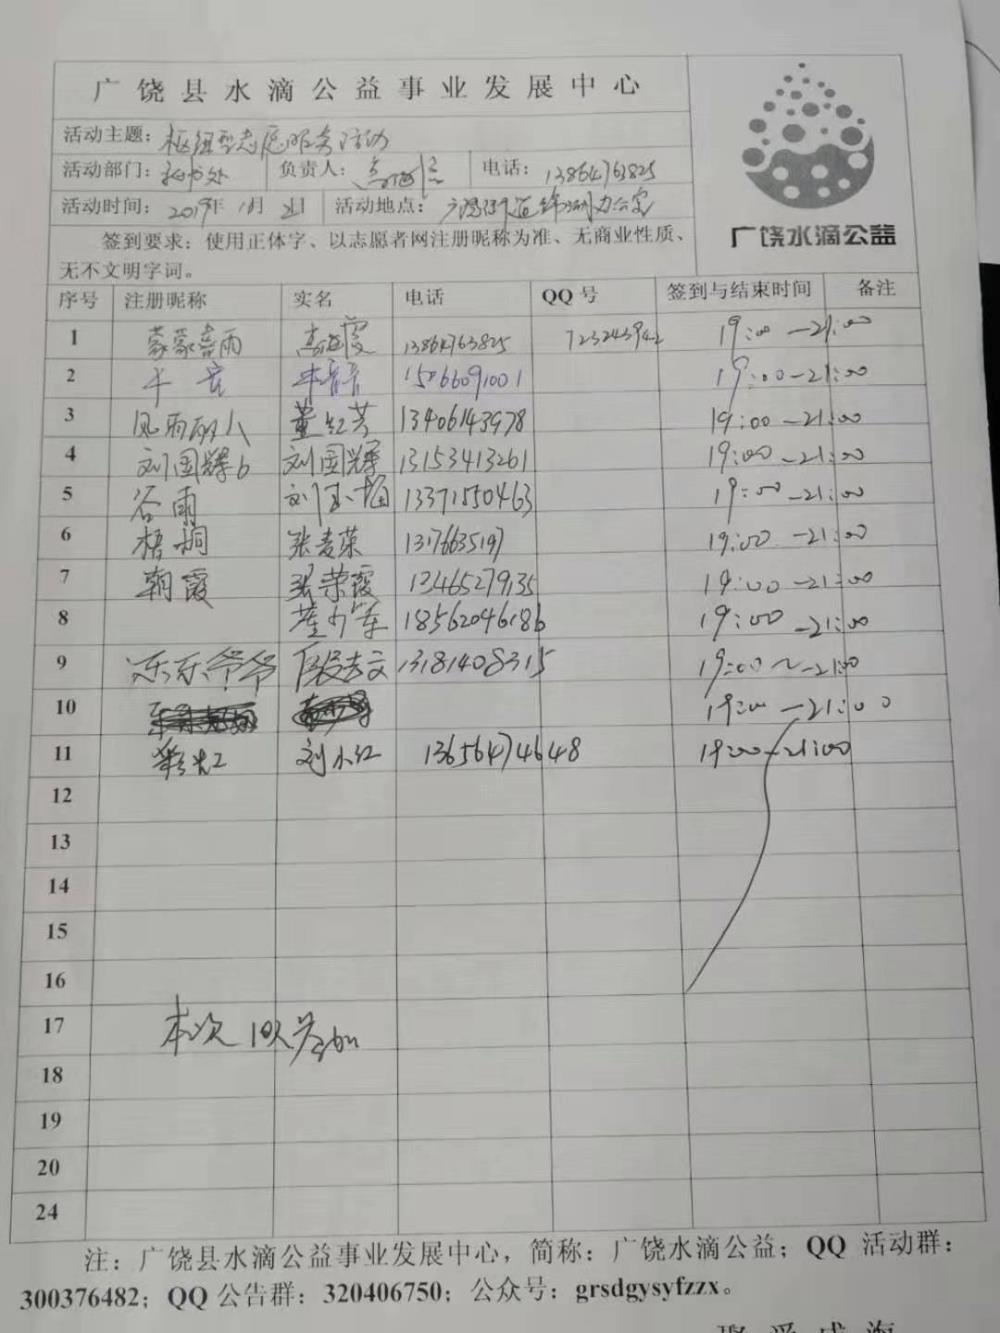 广饶县水滴公益事业发展中心
活动主题：枢纽型志愿服务活动
活动部门：秘书处 负责人： 电话：13864763825
活动时间：2019年1月2日 活动地点：
广饶水滴公益
签到要求：使用正体字、以志愿者网注册昵称为准、无商业性质、
无不文明字词。
序号 注册昵称 实名 电话 QQ号 签到与结束时间 备注
1 蒙蒙喜雨 高延霞 13864763825 723243942 19:00—21:00
2 15066091001 19:00—21:00
3 风雨丽人 董红芳 13406143978 19:00—21:00
4 刘国辉6 刘国辉 13153413261 19:00—21:00
5 谷雨 13371550463 19:00—21:00
6 梧桐 张麦荣 13176635197 19:00—21:00
7 朝霞 张荣霞 13465279135 19:00—21:00
8 董少军 18562046186 19:00—21:00
9 乐乐爷爷 13181408315 19:00~21:00
10 19:00—21:00
11 彩虹 刘小红 13656474648 19:00—21:00
12
13
14
15
16
17 本次10人参加
18
19
20
24
注：广饶县水滴公益事业发展中心，简称：广饶水滴公益；QQ 活动群：
300376482；QQ 公告群：320406750；公众号：grsdgysyfzzx。